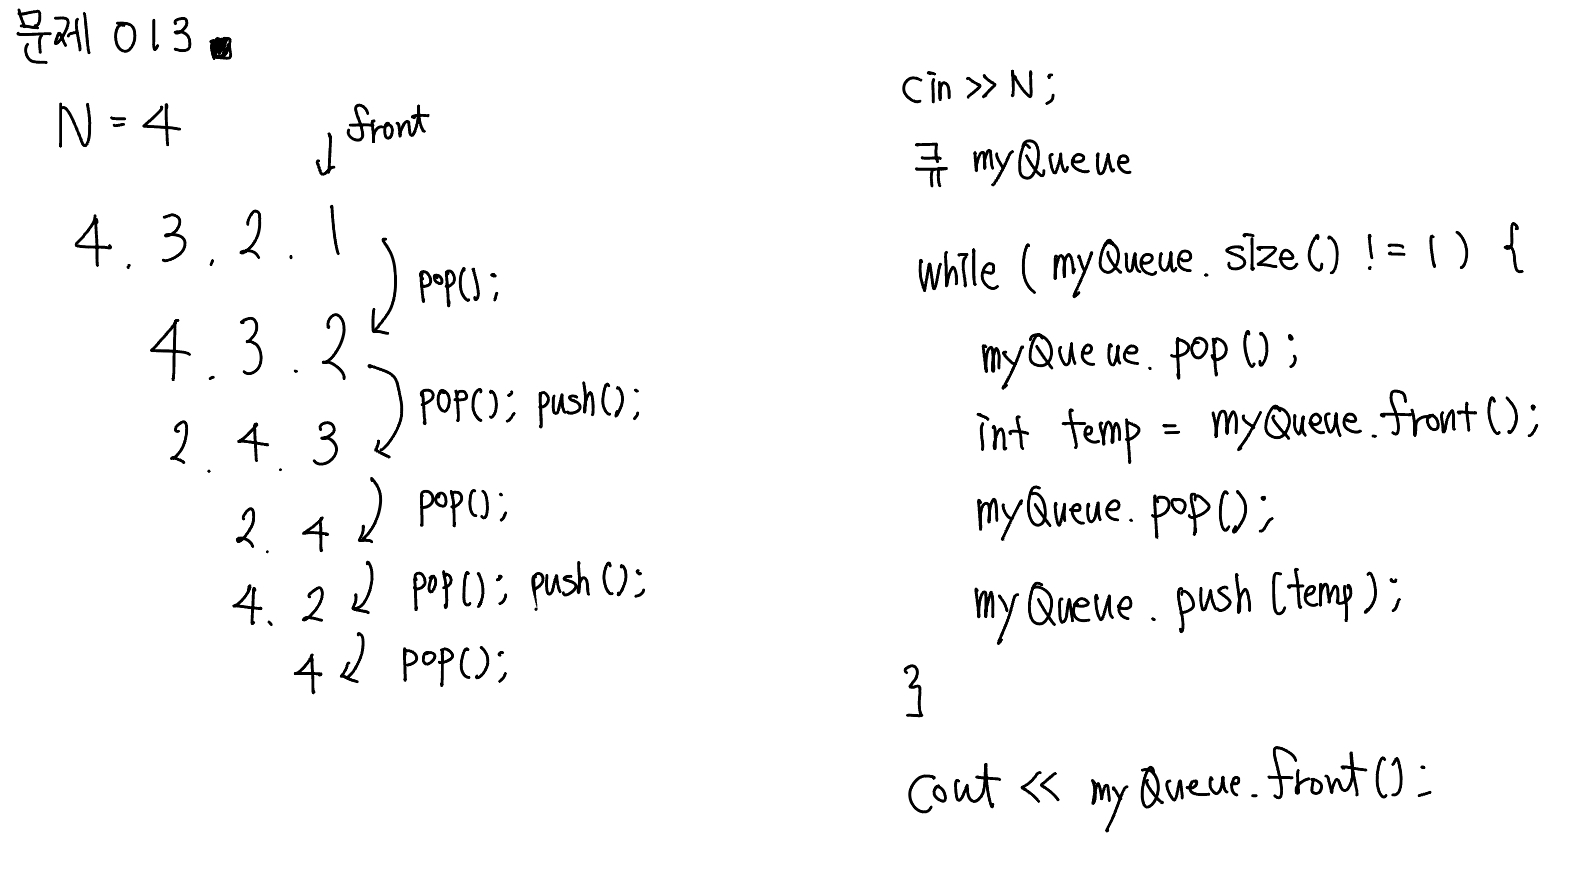 문제 013.
N = 4
front
4. 3. 2. 1
pop();
4. 3. 2
pop(); push();
2. 4. 3
pop();
2. 4
pop(); push();
4. 2
pop();
4
cin >> N;
큐 myQueue
while ( myQueue. size() != 1 ) {
myQueue. pop();
int temp = myQueue.front();
myQueue. pop();
myQueue. push (temp);
}
cout << myQueue.front();